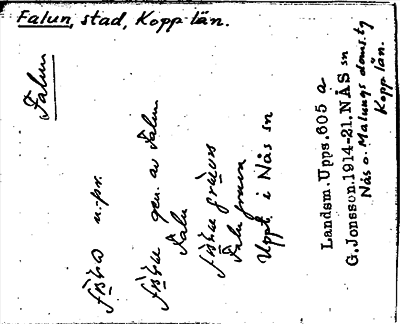 Falun, stad, Kopp. län.
Falun
n. pr.
gen. av Falun
Falu
Falu gruva
Uppt. i Nås sn
Landsm. Upps. 605 a
G. Jonsson. 1914-21. NÅS sn
Nås o. Malungs doms. tg
Kopp. län.